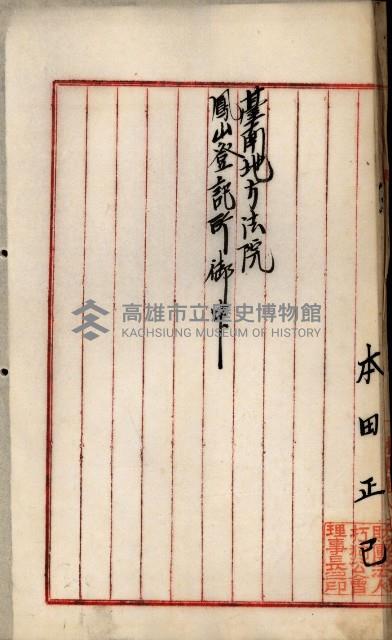 本田正己
臺南地方法院
鳳山登記所御中
高雄市立歷史博物館
KAOHSIUNG MUSEUM OF HISTORY
理事長印